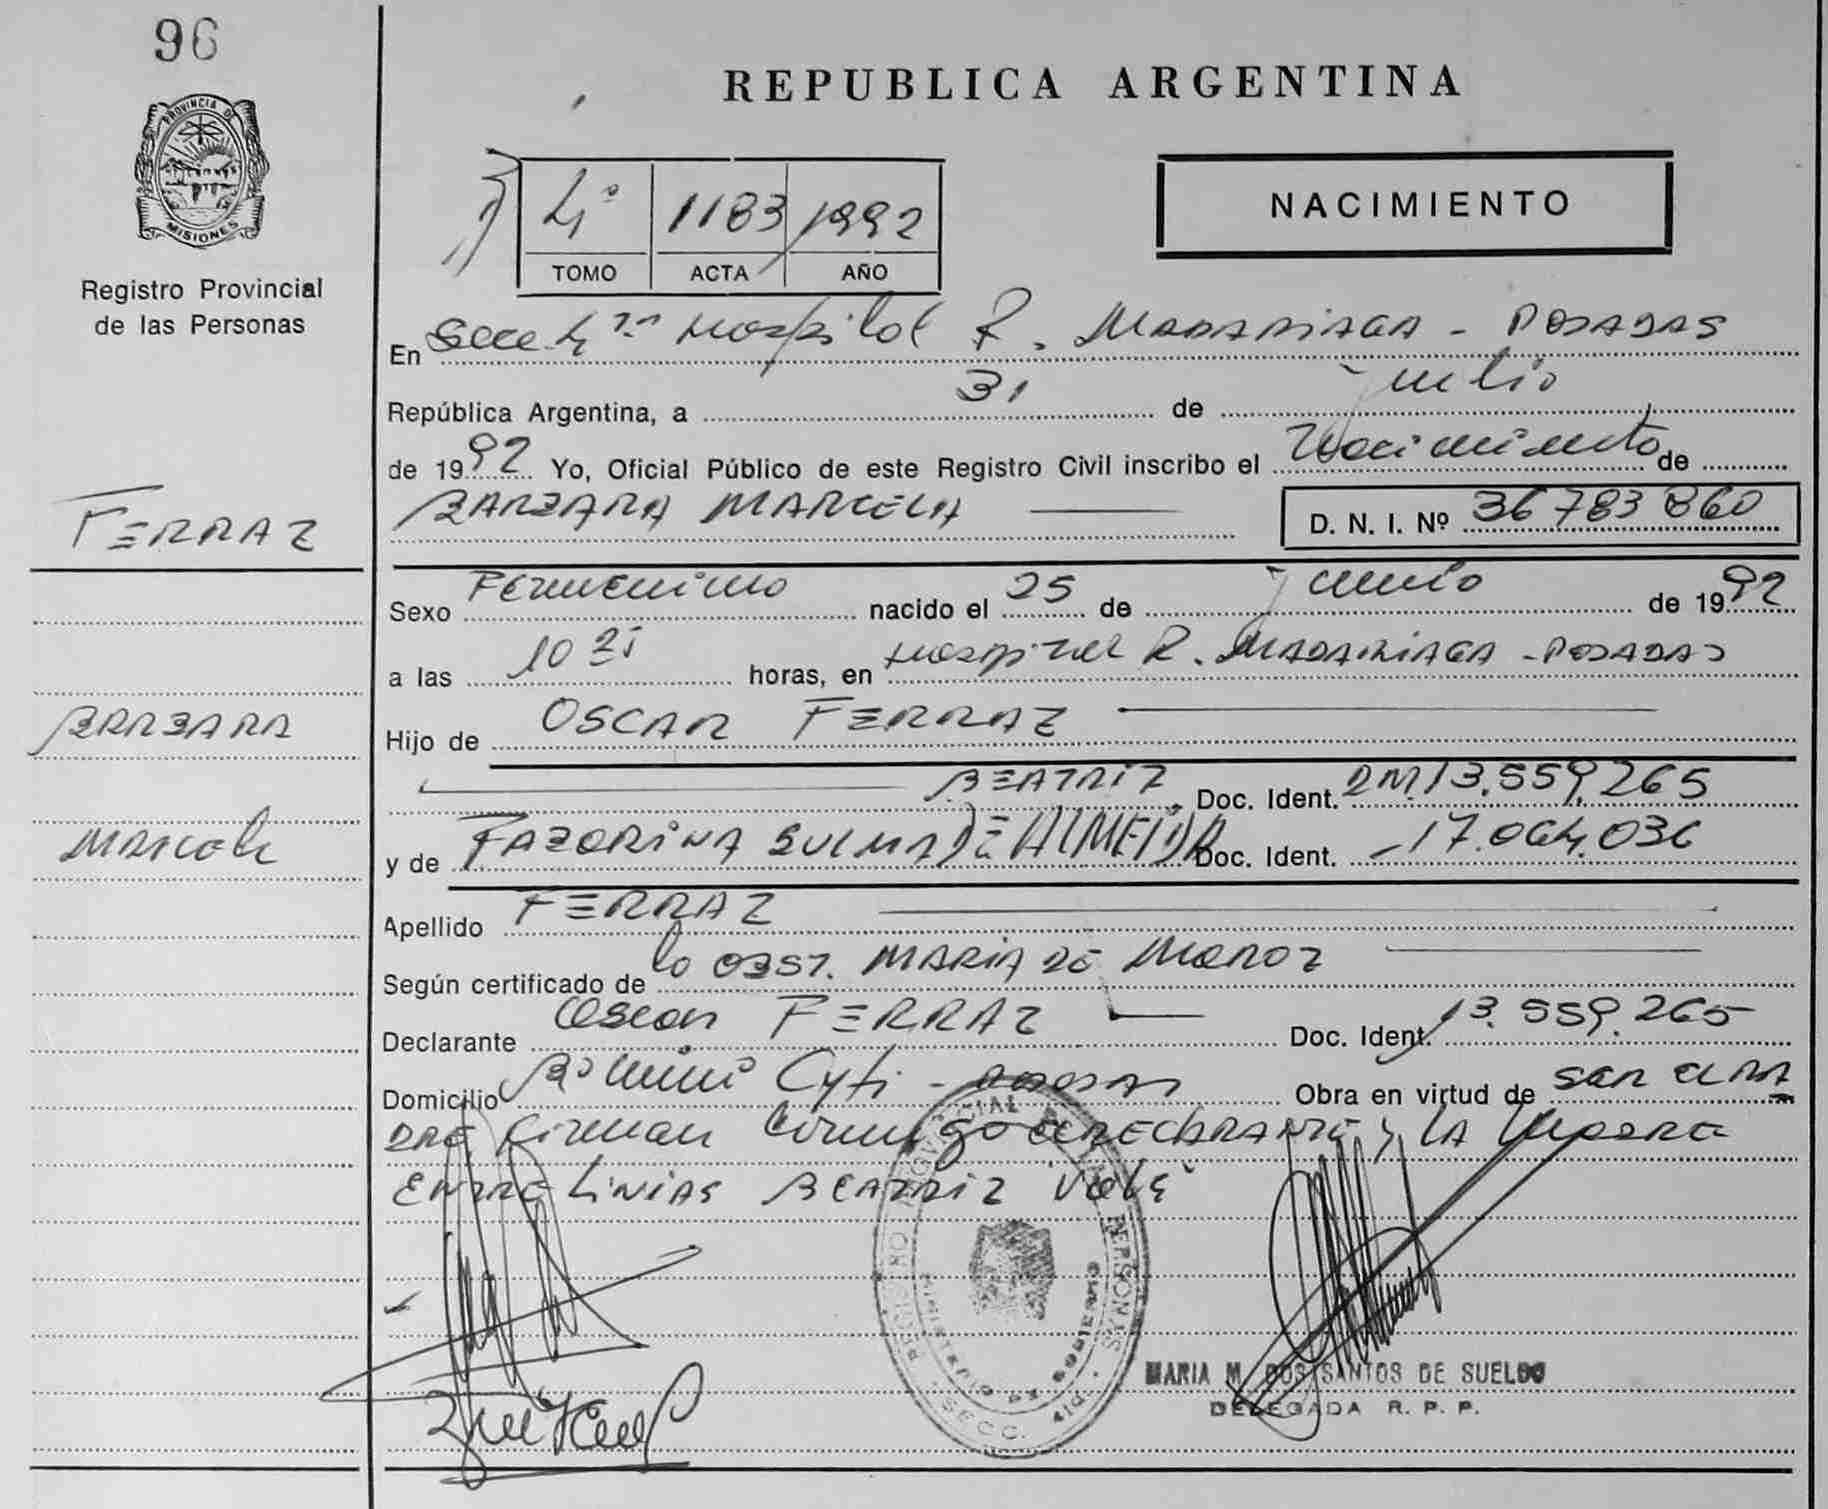 96
REPUBLICA ARGENTINA
PROVINCIA DE
MISIONES
Registro Provincial
de las Personas
4º 1183 1992
TOMO ACTA AÑO
NACIMIENTO
En Secc 4ta Hospital R. MADARIAGA - POSADAS
República Argentina, a 31 de julio
de 1992 Yo, Oficial Público de este Registro Civil inscribo el Nacimiento de
FERRAZ
BARBARA MARCELA
D. N. I. Nº 36 783 860
Sexo Femenino nacido el 25 de junio de 1992
a las 10 horas, en Hospital R. MADARIAGA - POSADAS
BARBARA
Hijo de OSCAR FERRAZ
BEATRIZ Doc. Ident. DNI 13.559.265
MARCELA
y de SULMA DE ALMEIDA Doc. Ident. 17.064.036
Apellido FERRAZ
Según certificado de la OBST. MARIA DE
Declarante Oscar FERRAZ Doc. Ident. 13.559.265
Domicilio Bº Obra en virtud de ser el PA
DRE firman conmigo el DECLARANTE y LA MADRE
ENTRE LINIAS BEATRIZ Vale
REGISTRO PROVINCIAL DE LAS PERSONAS
MINISTERIO DE GOBIERNO
SECC.
MARIA M. DOS SANTOS DE SUELDO
DELEGADA R. P. P.